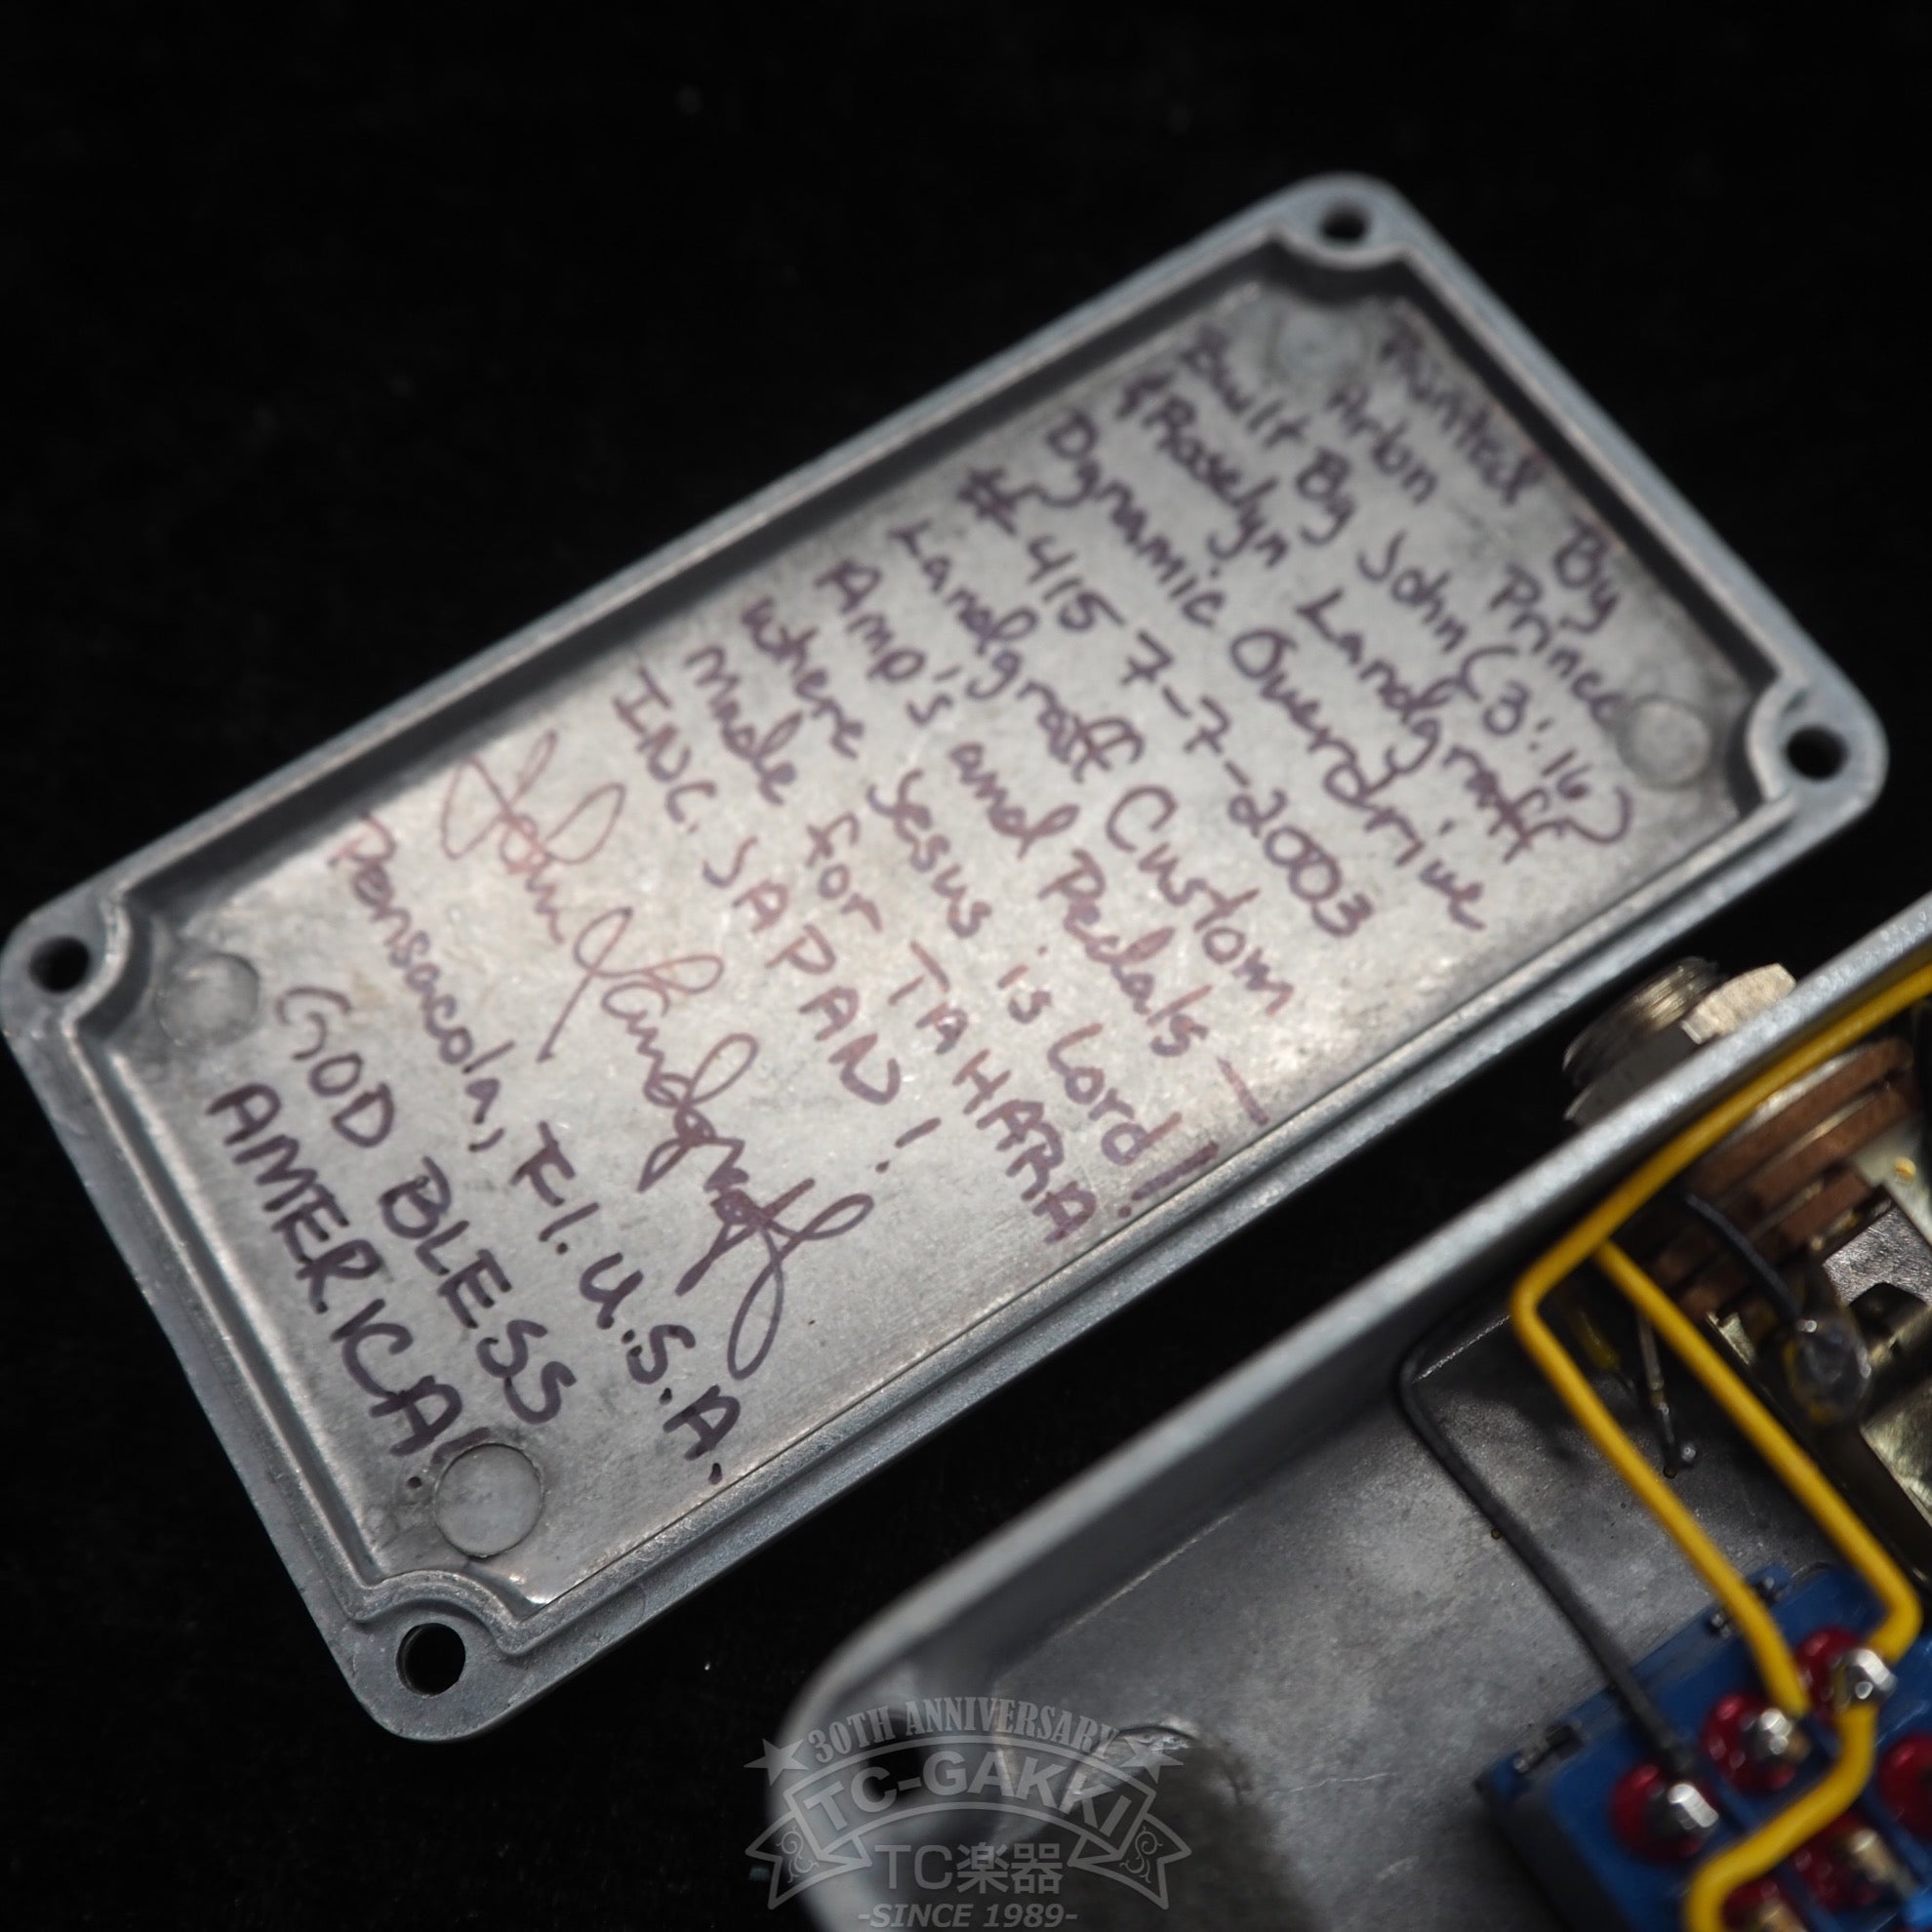 Painted By
Arlon Prince
Built By John (3:16)
& Roselyn Landgraff
Dynamic Overdrive
# 415 7-7-2003
Landgraff Custom
Amp's and Pedals -
where Jesus is Lord!!
Made for TAHARA
INC. JAPAN!
John Landgraff
Pensacola, Fl. U.S.A.
GOD BLESS
AMERICA!
30TH ANNIVERSARY
TC-GAKKI
TC楽器
-SINCE 1989-